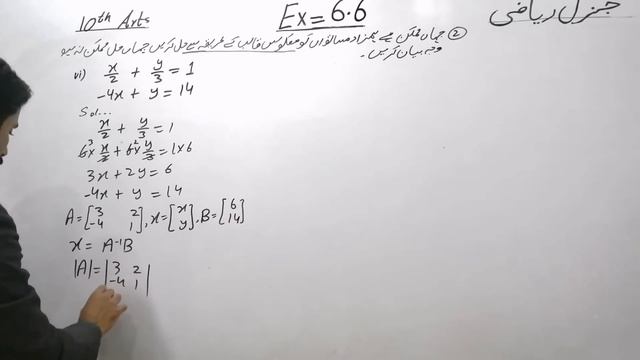 10th Arts Ex = 6.6 جنرل ریاضی
② جہاں ممکن ہے ہمزاد مساواتوں کو معکوس قالب کے طریقہ سے حل کریں جہاں حل ممکن نہ ہو
وجہ بیان کریں۔
vi) x/2 + y/3 = 1
-4x + y = 14
Sol...
x/2 + y/3 = 1
6³ × x/2 + 6² × y/3 = 1×6
3x + 2y = 6
-4x + y = 14
A = [3 2 -4 1], x = [x y], B = [6 14]
x = A⁻¹B
|A| = |3 2 -4 1|